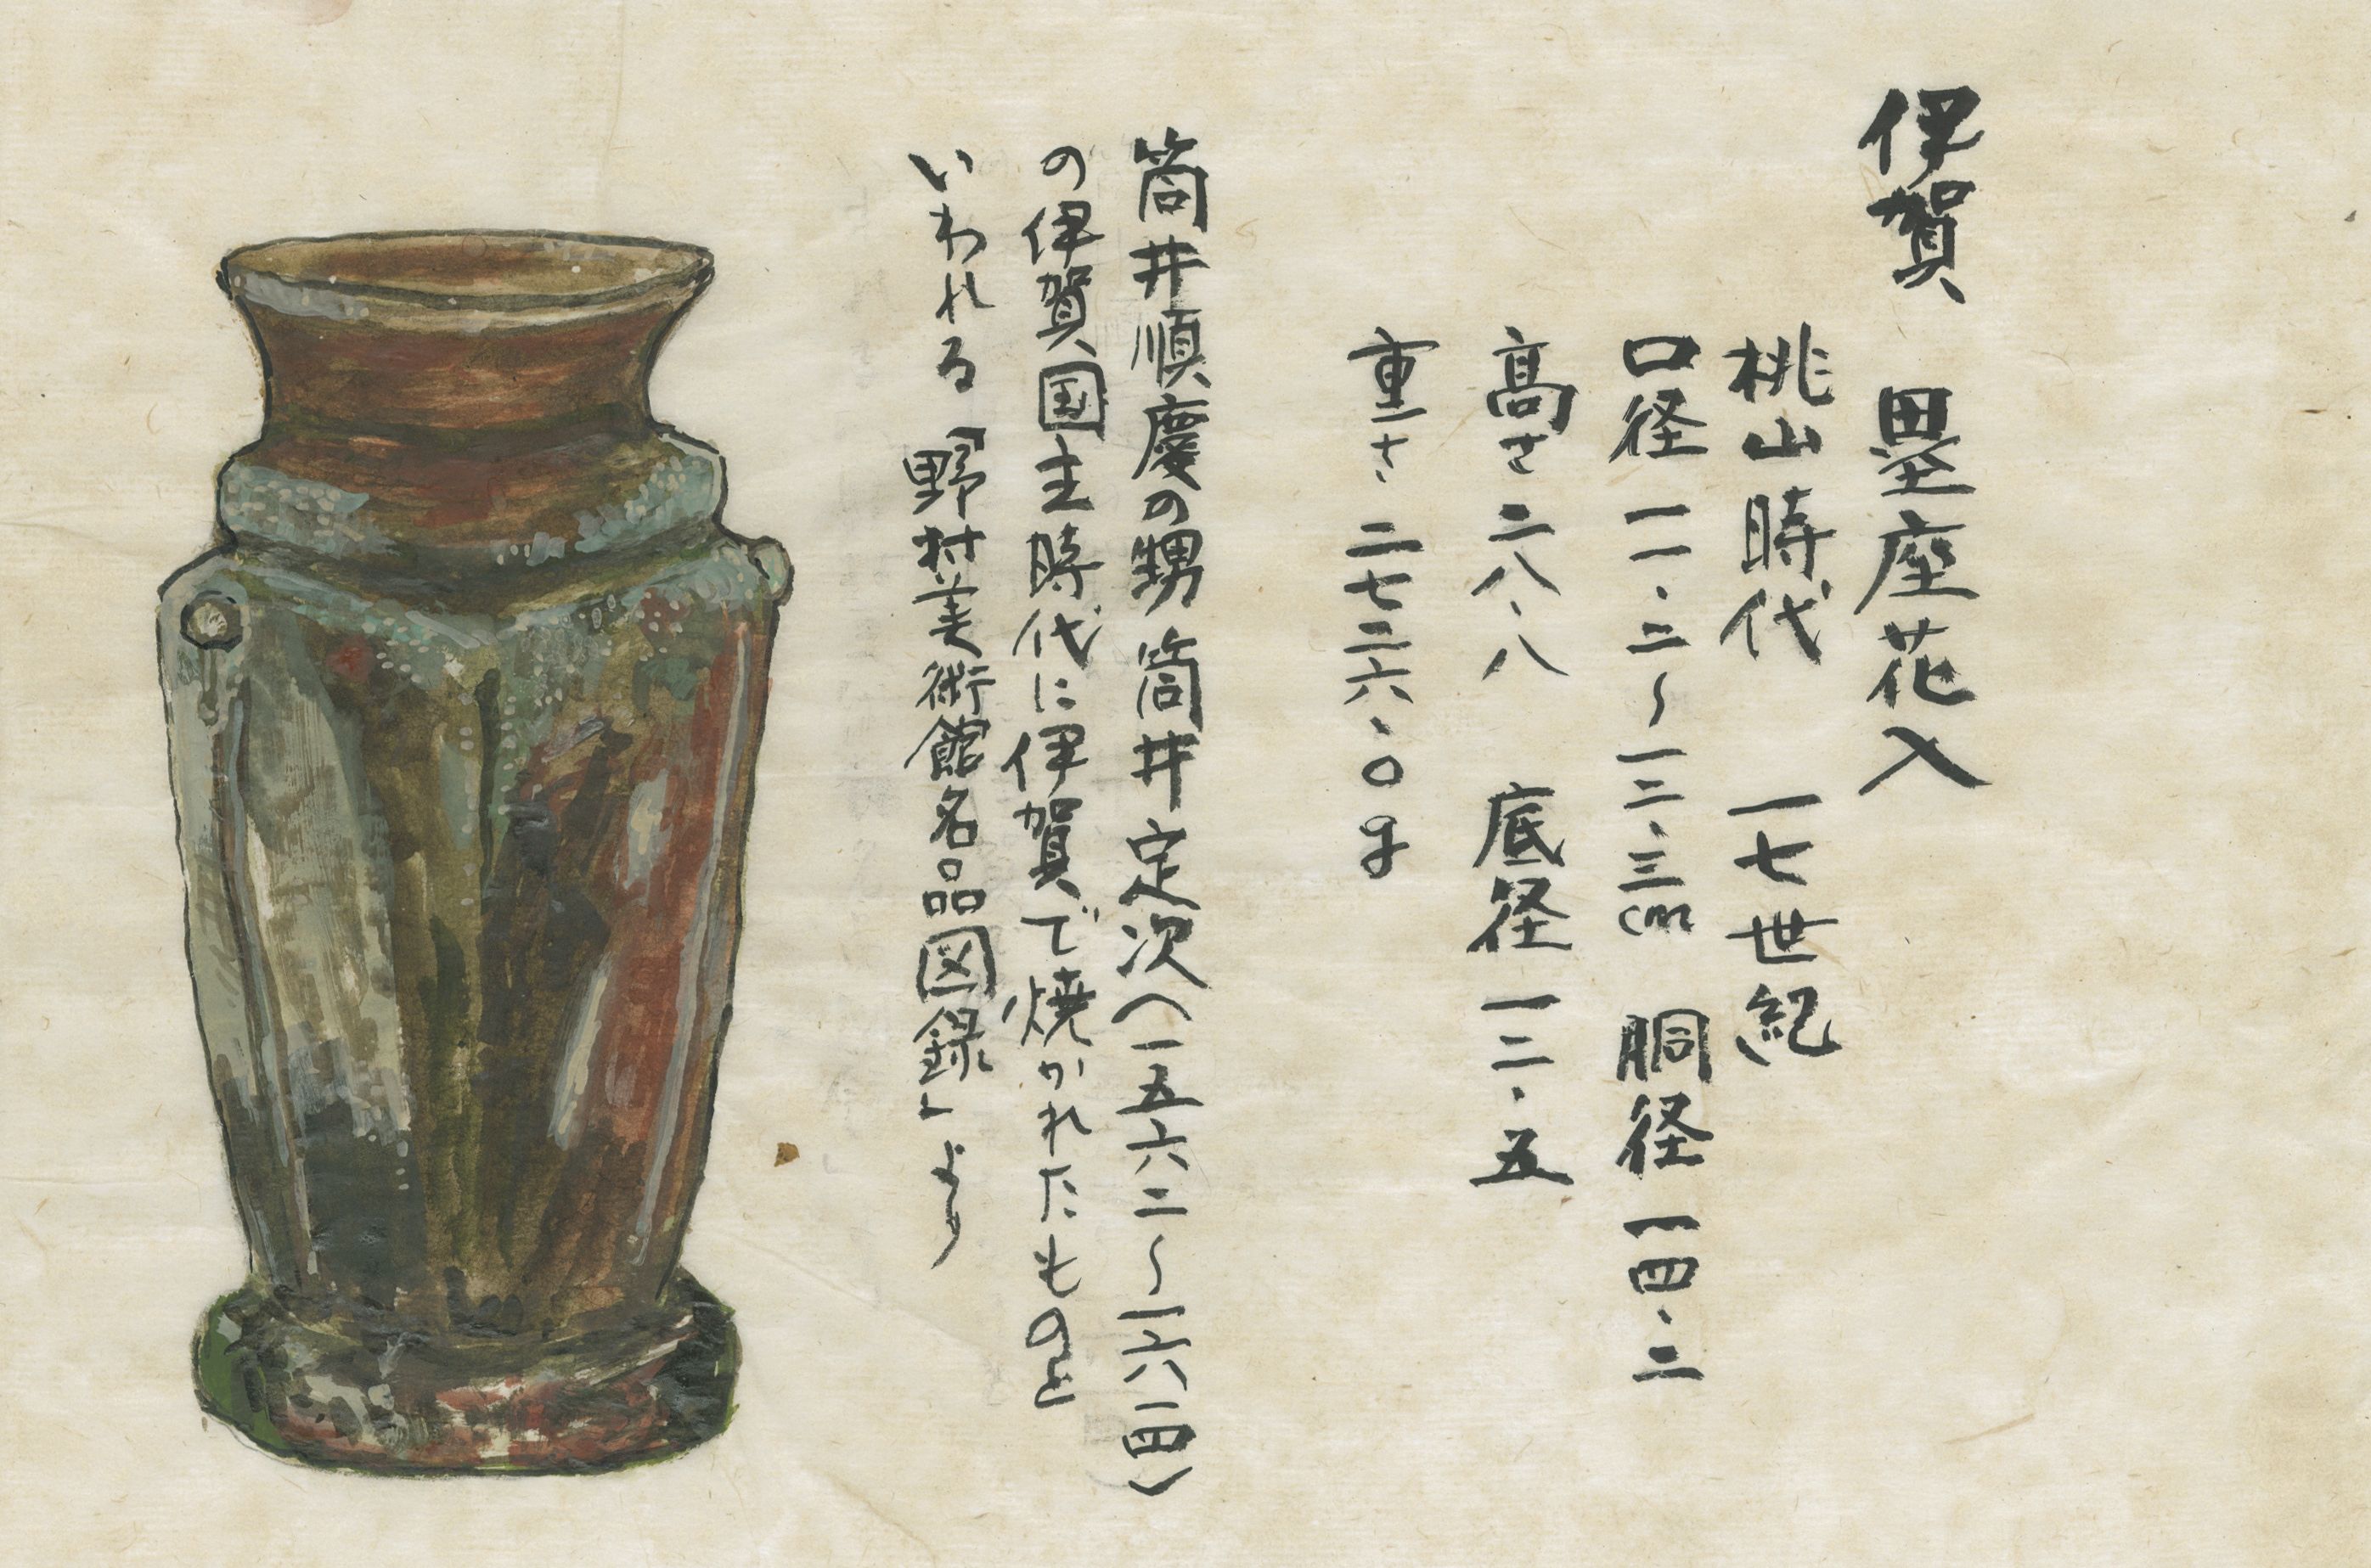 伊賀 塁座花入
桃山時代 一七世紀
口径一一・二〜一二・三cm 胴径一四・二
高さ二八・八 底径一二・五
重さ二七二六・〇g
筒井順慶の甥筒井定次(一五六二〜一六一四)
の伊賀国主時代に伊賀で焼かれたものと
いわれる「野村美術館名品図録」より